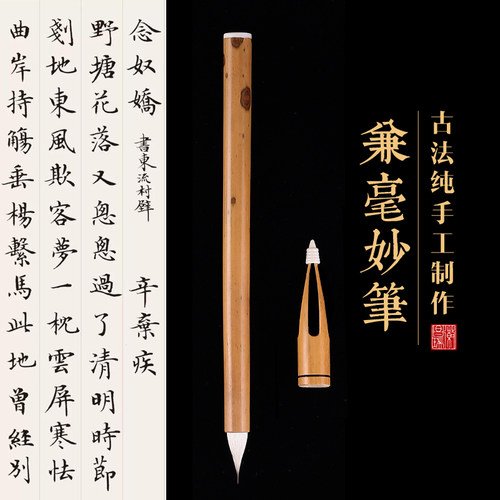 古法纯手工制作
兼毫妙筆
念奴嬌 書東流村壁 辛棄疾
野塘花落又悤悤過了清明時節
剗地東風欺客夢一枕雲屏寒怯
曲岸持觴垂楊繫馬此地曾經別